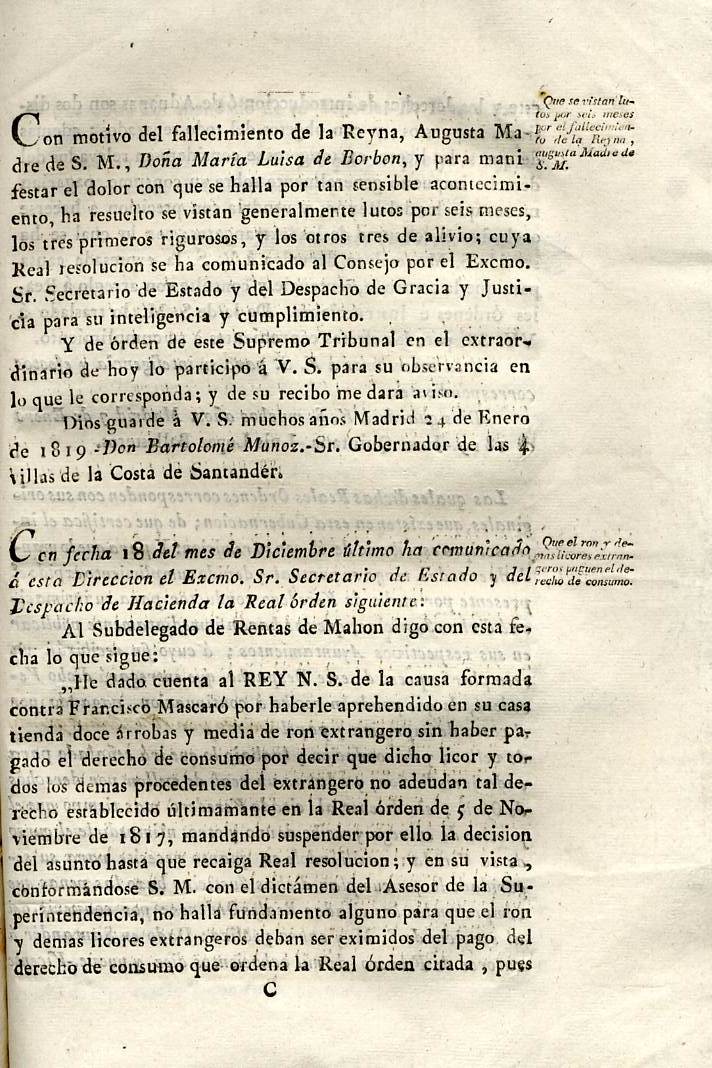 Con motivo del fallecimiento de la Reyna, Augusta Ma-
dre de S. M., Doña María Luisa de Borbon, y para mani
festar el dolor con que se halla por tan sensible acontecimi-
ento, ha resuelto se vistan generalmente lutos por seis meses,
los tres primeros rigurosos, y los otros tres de alivio; cuya
Real resolucion se ha comunicado al Consejo por el Excmo.
Sr. Secretario de Estado y del Despacho de Gracia y Justi-
cia para su inteligencia y cumplimiento.
Y de órden de este Supremo Tribunal en el extraor-
dinario de hoy lo participo á V. S. para su observancia en
lo que le corresponda; y de su recibo me dará aviso.
Dios guarde á V. S. muchos años Madrid 24 de Enero
de 1819.-Don Bartolomé Munoz.-Sr. Gobernador de las 4
villas de la Costa de Santandér.
Que se vistan lu-
tos por seis meses
por el fallecimien-
to de la Reyna,
augusta Madre de
S. M.
Con fecha 18 del mes de Diciembre último ha comunicado
á esta Direccion el Excmo. Sr. Secretario de Estado y del
Despacho de Hacienda la Real órden siguiente:
Al Subdelegado de Rentas de Mahon digo con esta fe-
cha lo que sigue:
„He dado cuenta al REY N. S. de la causa formada
contra Francisco Mascaró por haberle aprehendido en su casa
tienda doce arrobas y media de ron extrangero sin haber pa-
gado el derecho de consumo por decir que dicho licor y to-
dos los demas procedentes del extrangero no adeudan tal de-
recho establecido últimamante en la Real órden de 5 de No-
viembre de 1817, mandando suspender por ello la decision
del asunto hasta que recaiga Real resolucion; y en su vista,
conformándose S. M. con el dictámen del Asesor de la Su-
perintendencia, no halla fundamento alguno para que el ron
y demas licores extrangeros deban ser eximidos del pago del
derecho de consumo que ordena la Real órden citada, pues
Que el ron y de-
mas licores extran-
geros paguen el de-
recho de consumo.
C